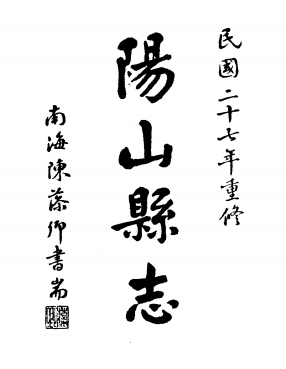 民國二十七年重修
陽山縣志
南海陳藻卿書耑